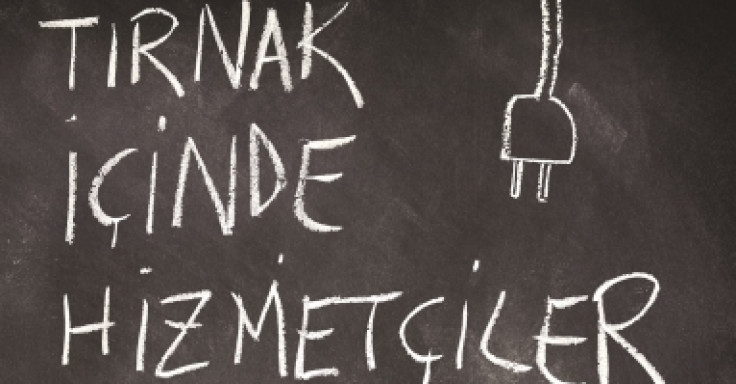 TIRNAK
İÇİNDE
HİZMETÇİLER